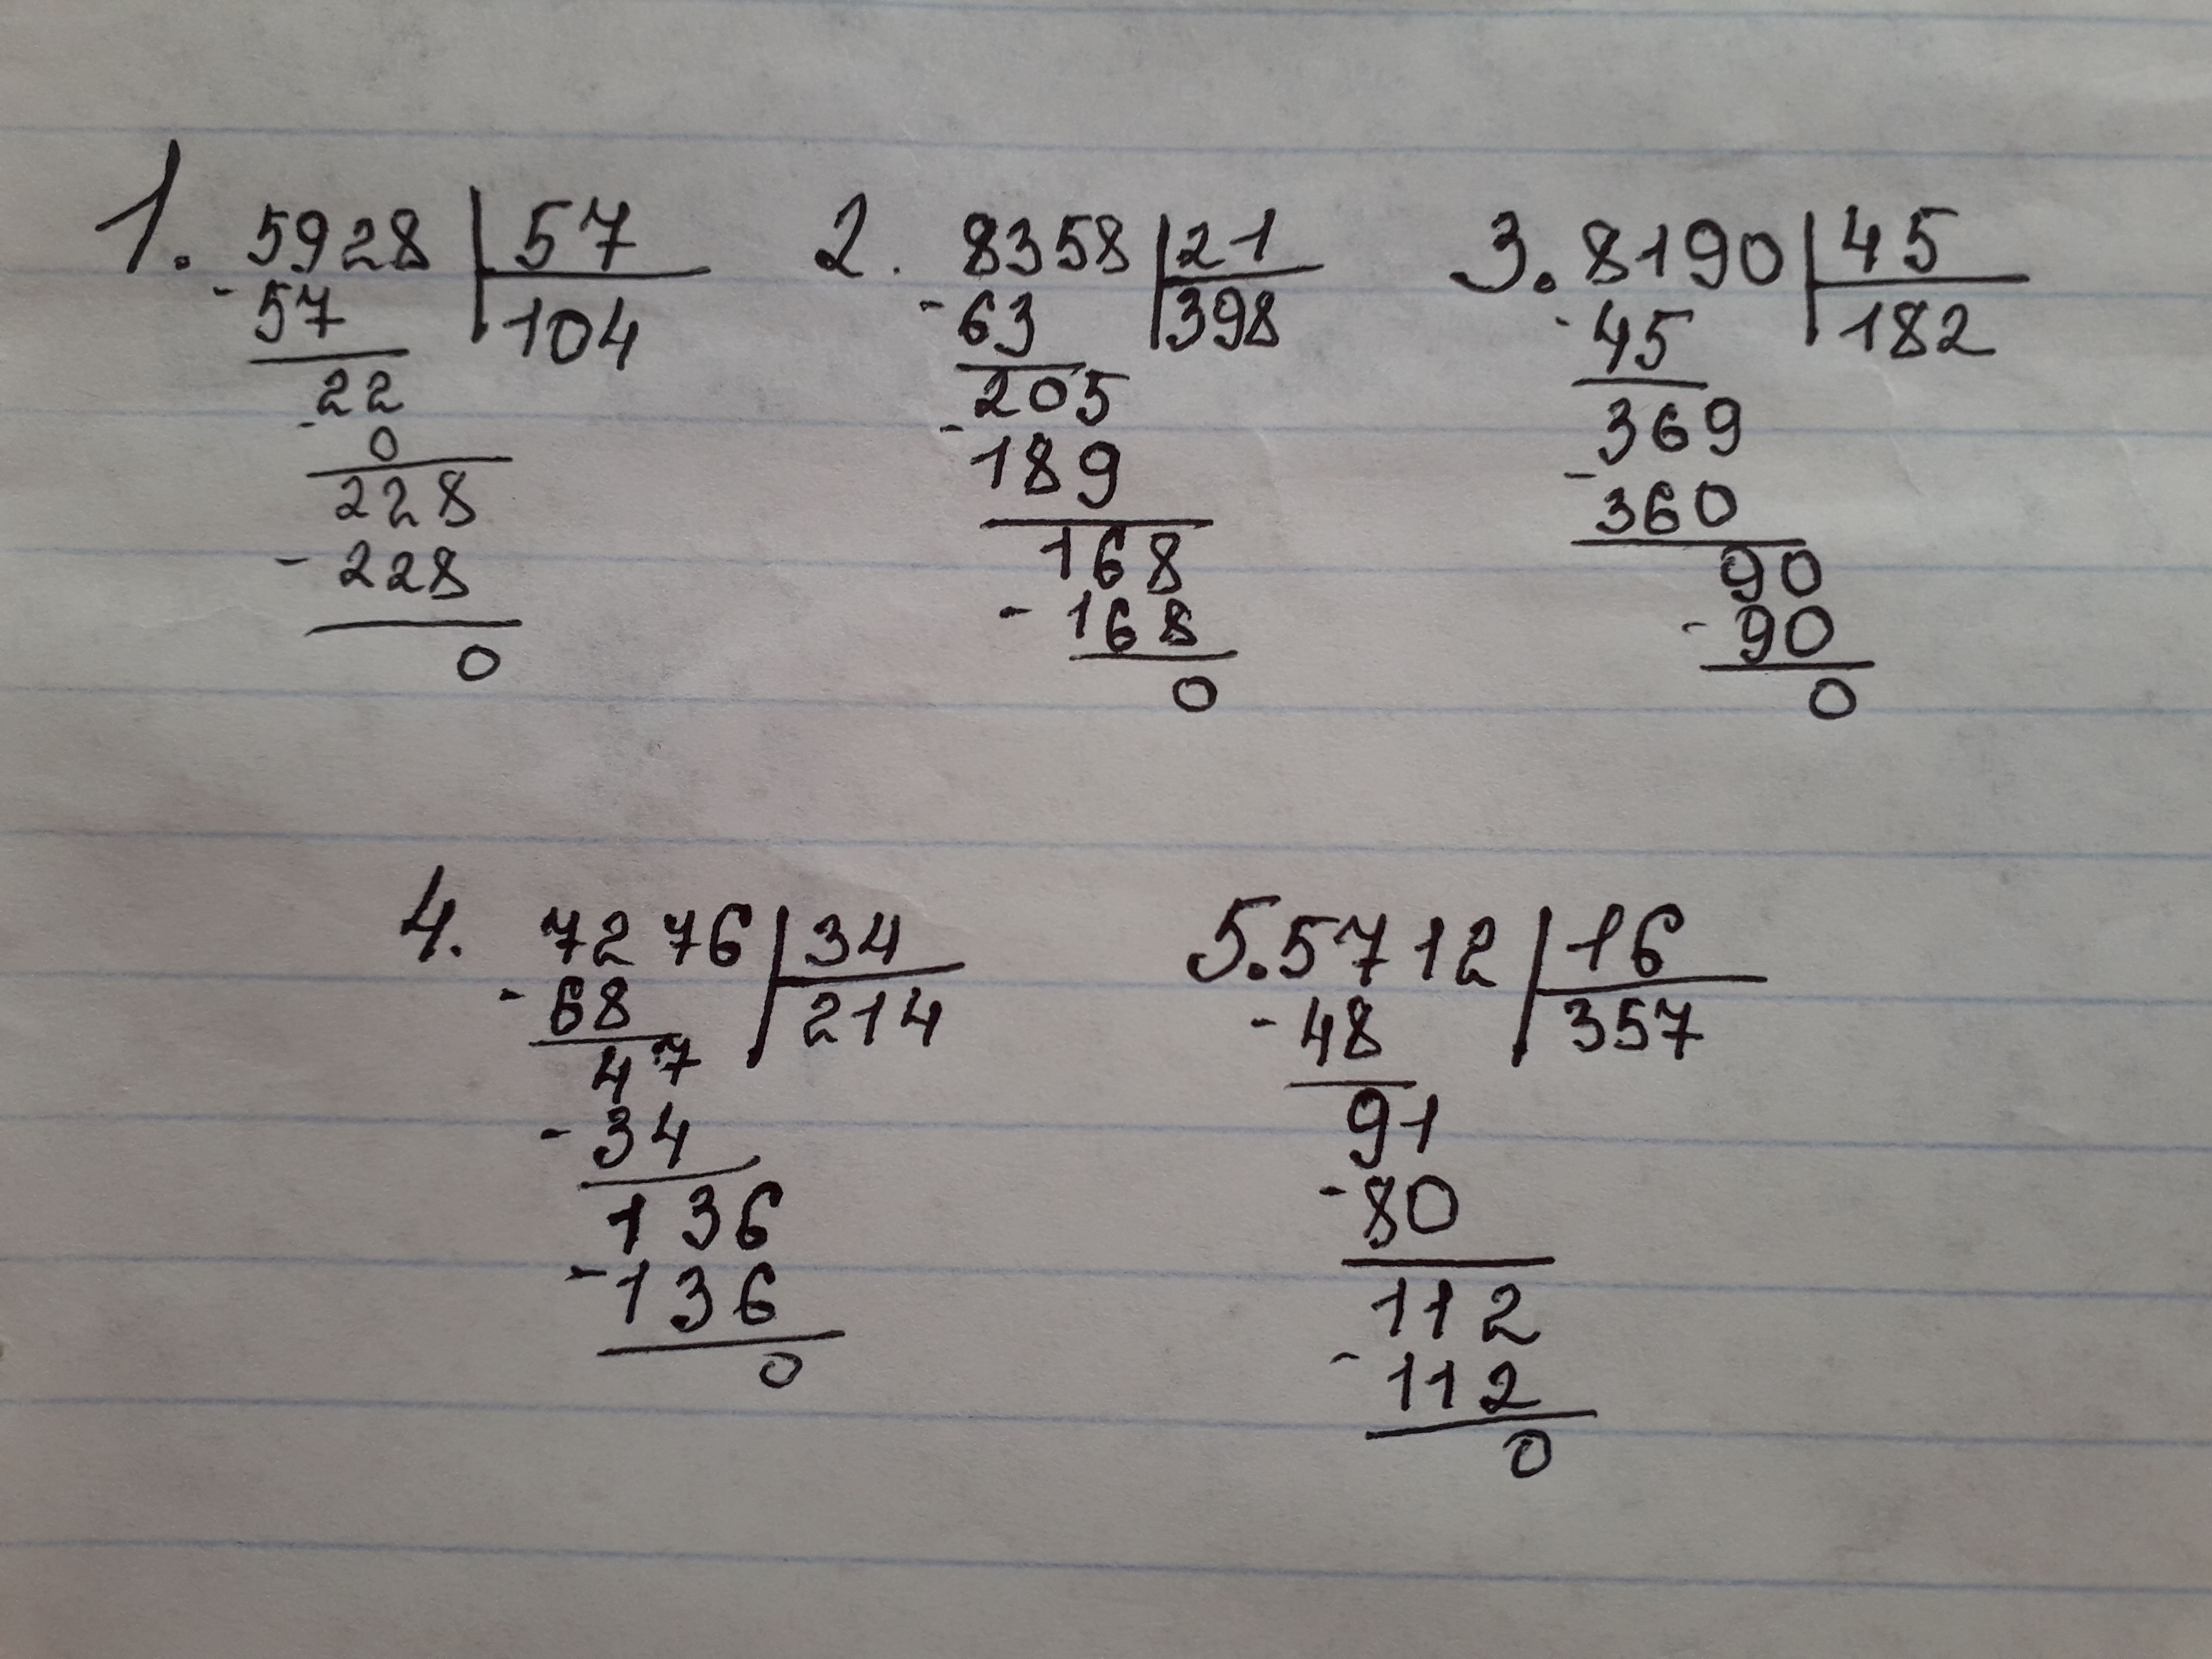 1. 5928 | 57
- 57 | 104
- 22
0
228
- 228
0
2. 8358 | 21
- 63 | 398
- 205
189
168
- 168
0
3. 8190 | 45
- 45 | 182
369
- 360
90
- 90
0
4. 7276 | 34
- 68 | 214
47
- 34
136
- 136
0
5. 5712 | 16
- 48 | 357
91
- 80
112
- 112
0